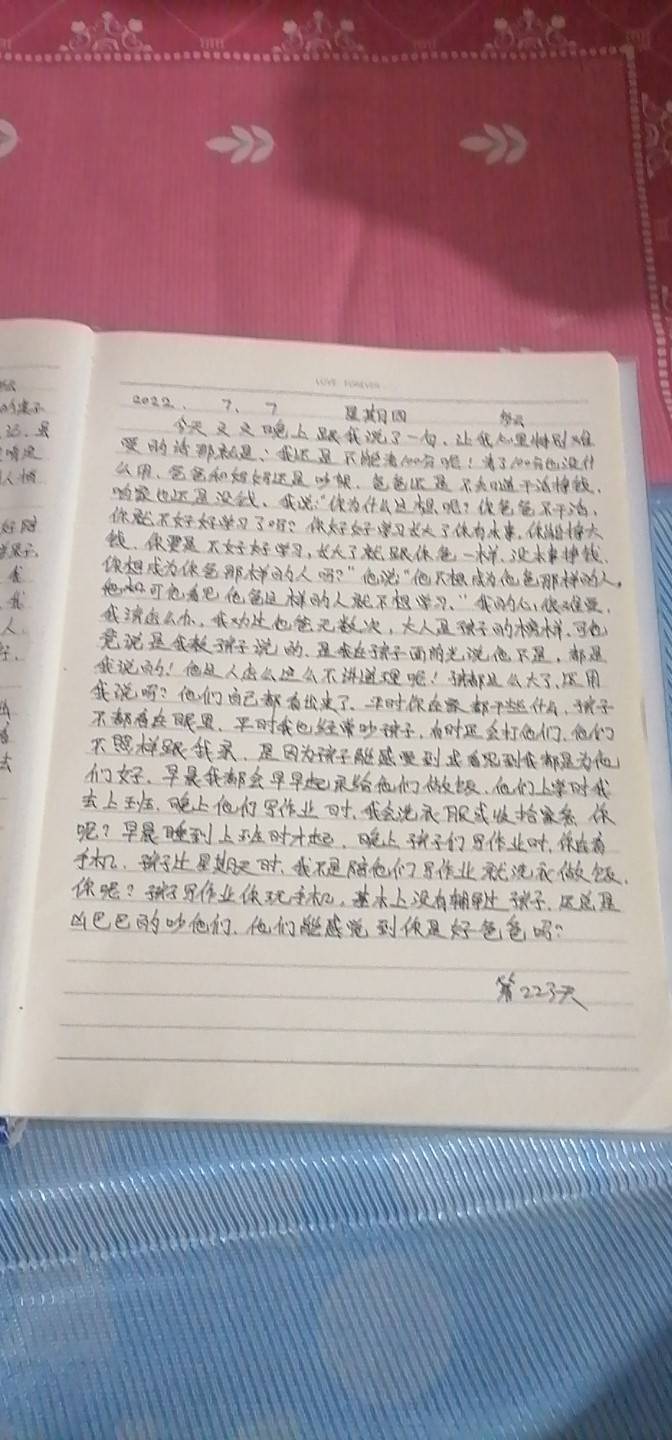 LOVE FOREVER
2022. 7. 7 星期四 多云
今天文文晚上跟我说了一句,让我心里特别难
受的话那就是、我还是不能考100分呢!考了100分也没什
么用、爸爸和妈妈还是吵架、爸爸还是不知道干活挣钱、
咱家也还是没钱、我说:“你为什么这样想呢?你爸爸不干活,
你就不好好学习了吗?你好好学习长大了你有本事,你能挣大
钱、你要是不好好学习,长大了就跟你爸一样、没本事挣钱、
你想成为你爸那样的人吗?”他说“他不想成为他爸那样的人。
他可他看见他爸这样的人就不想学习、”我的心,很难受,
我该怎么办、我劝过他爸无数次,大人是孩子的榜样、可他
竟说是我教孩子说的、是我在孩子面前光说他不是,都是
我说的!他这人怎么这么不讲道理呢!孩都这么大了、还用
我说吗?他们自己都看出来了、平时你在家都干些什么、孩子
不都看在眼里、平时我也经常吵孩子,有时还会打他们、他们
不照样跟我亲、是因为孩子能感受到或看见到我都是为他
们好、早晨我都会早早起来给他们做饭、他们上学时我
去上班、晚上他们写作业时、我会洗衣服或收拾家务、你
呢?早晨睡到上班时才起、晚上孩子们写作业时、你在看
手机、孩子过星期天时、我不是陪他们写作业就洗衣做饭、
你呢?孩子写作业你玩手机,基本上没有辅导过孩子、还总是
凶巴巴的吵他们、他们能感觉到你是好爸爸吗?
第223天